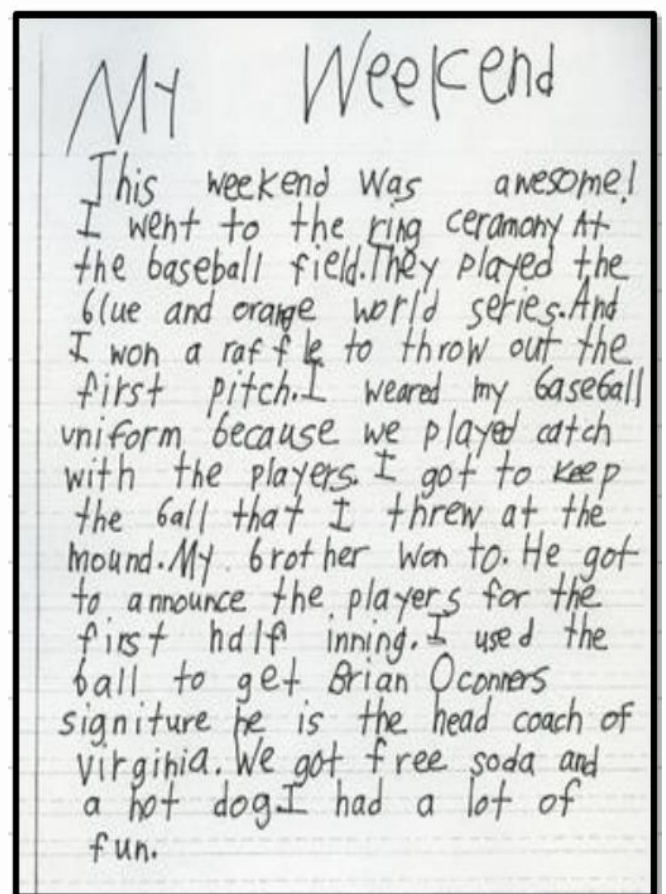 My Weekend
This weekend was awesome!
I went to the ring ceramony At
the baseball field. They played the
blue and orange world series. And
I won a raffle to throw out the
first pitch. I weared my baseball
uniform because we played catch
with the players. I got to keep
the ball that I threw at the
mound. My brother won to. He got
to announce the players for the
first half inning. I used the
ball to get Brian Oconners
signiture he is the head coach of
virginia. We got free soda and
a hot dog. I had a lot of
fun.